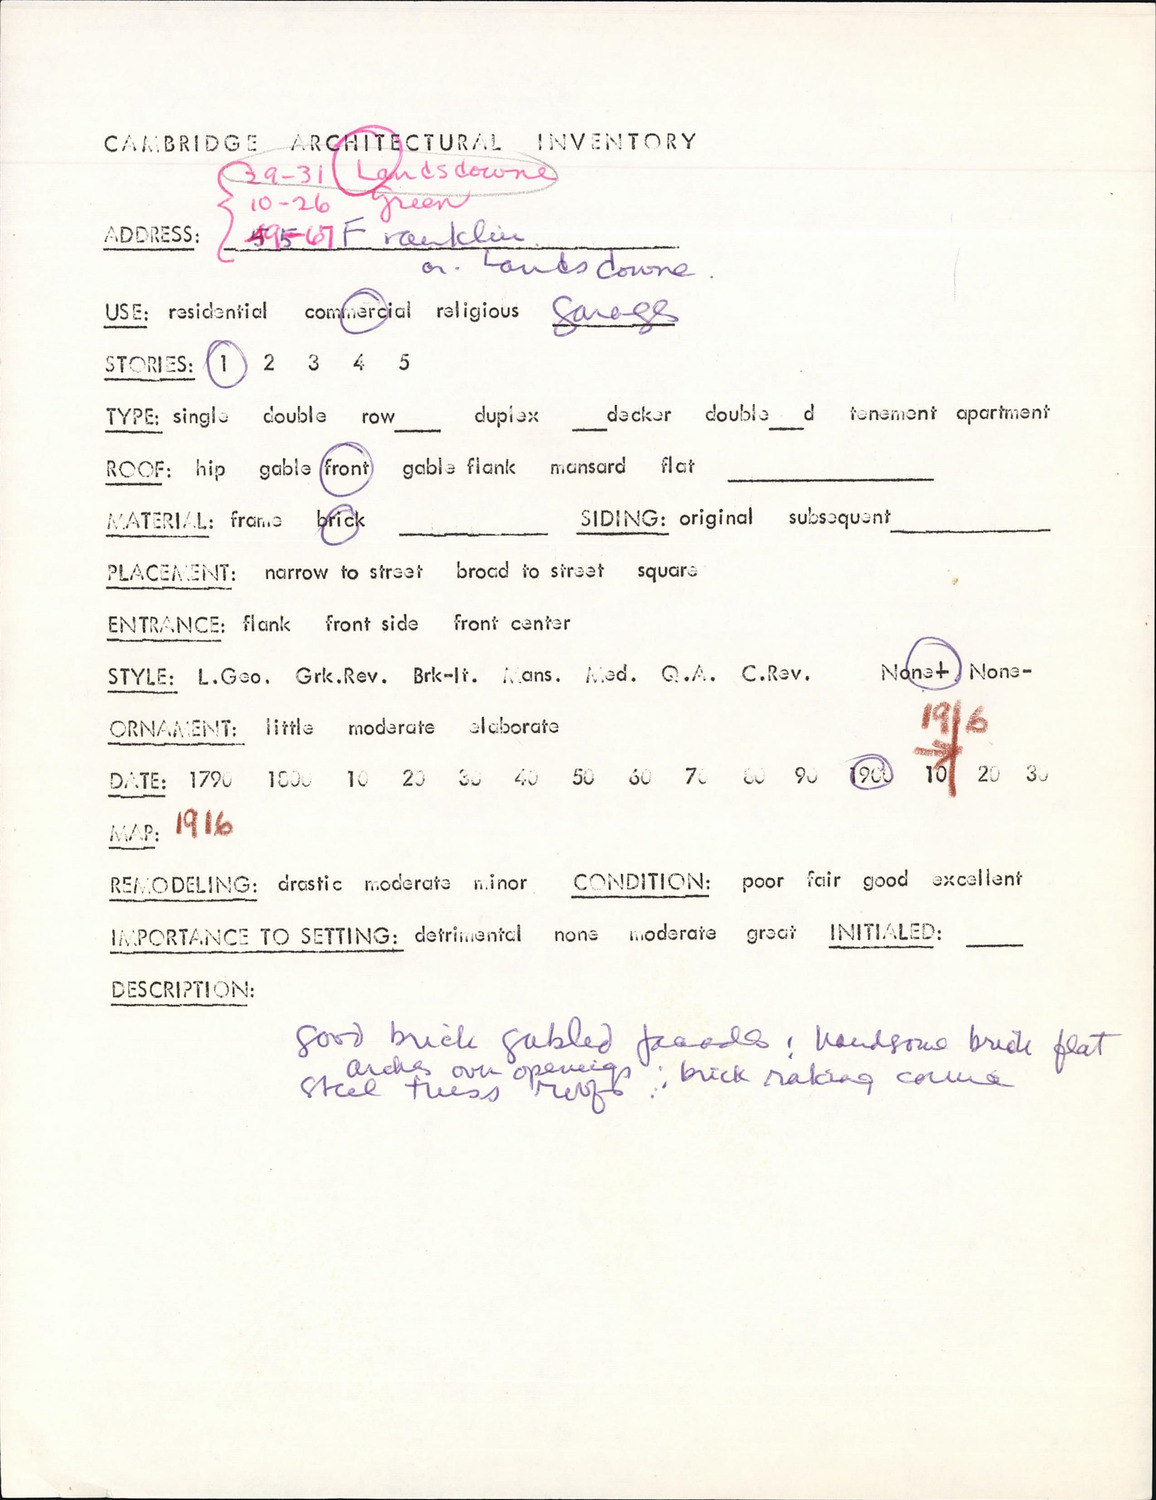 CAMBRIDGE ARCHITECTURAL INVENTORY
29-31 Landsdowne
10-26 Green
ADDRESS: Franklin
or. Landsdowne.
USE: residential commercial religious Garage
STORIES: 1 2 3 4 5
TYPE: single double row____ duplex ___decker double___d tenement apartment
ROOF: hip gable front gable flank mansard flat
MATERIAL: frame brick ____ SIDING: original subsequent____
PLACEMENT: narrow to street broad to street square
ENTRANCE: flank front side front center
STYLE: L.Geo. Grk.Rev. Brk-It. Mans. Med. Q.A. C.Rev. None+ None-
1916
ORNAMENT: little moderate elaborate
DATE: 1790 1800 10 20 30 40 50 60 70 80 90 1900 10 20 30
MAP: 1916
REMODELING: drastic moderate minor CONDITION: poor fair good excellent
IMPORTANCE TO SETTING: detrimental none moderate great INITIALED: ____
DESCRIPTION:
good brick gabled facades; handsome brick flat
arches over openings; brick raking cornice
steel truss roofs